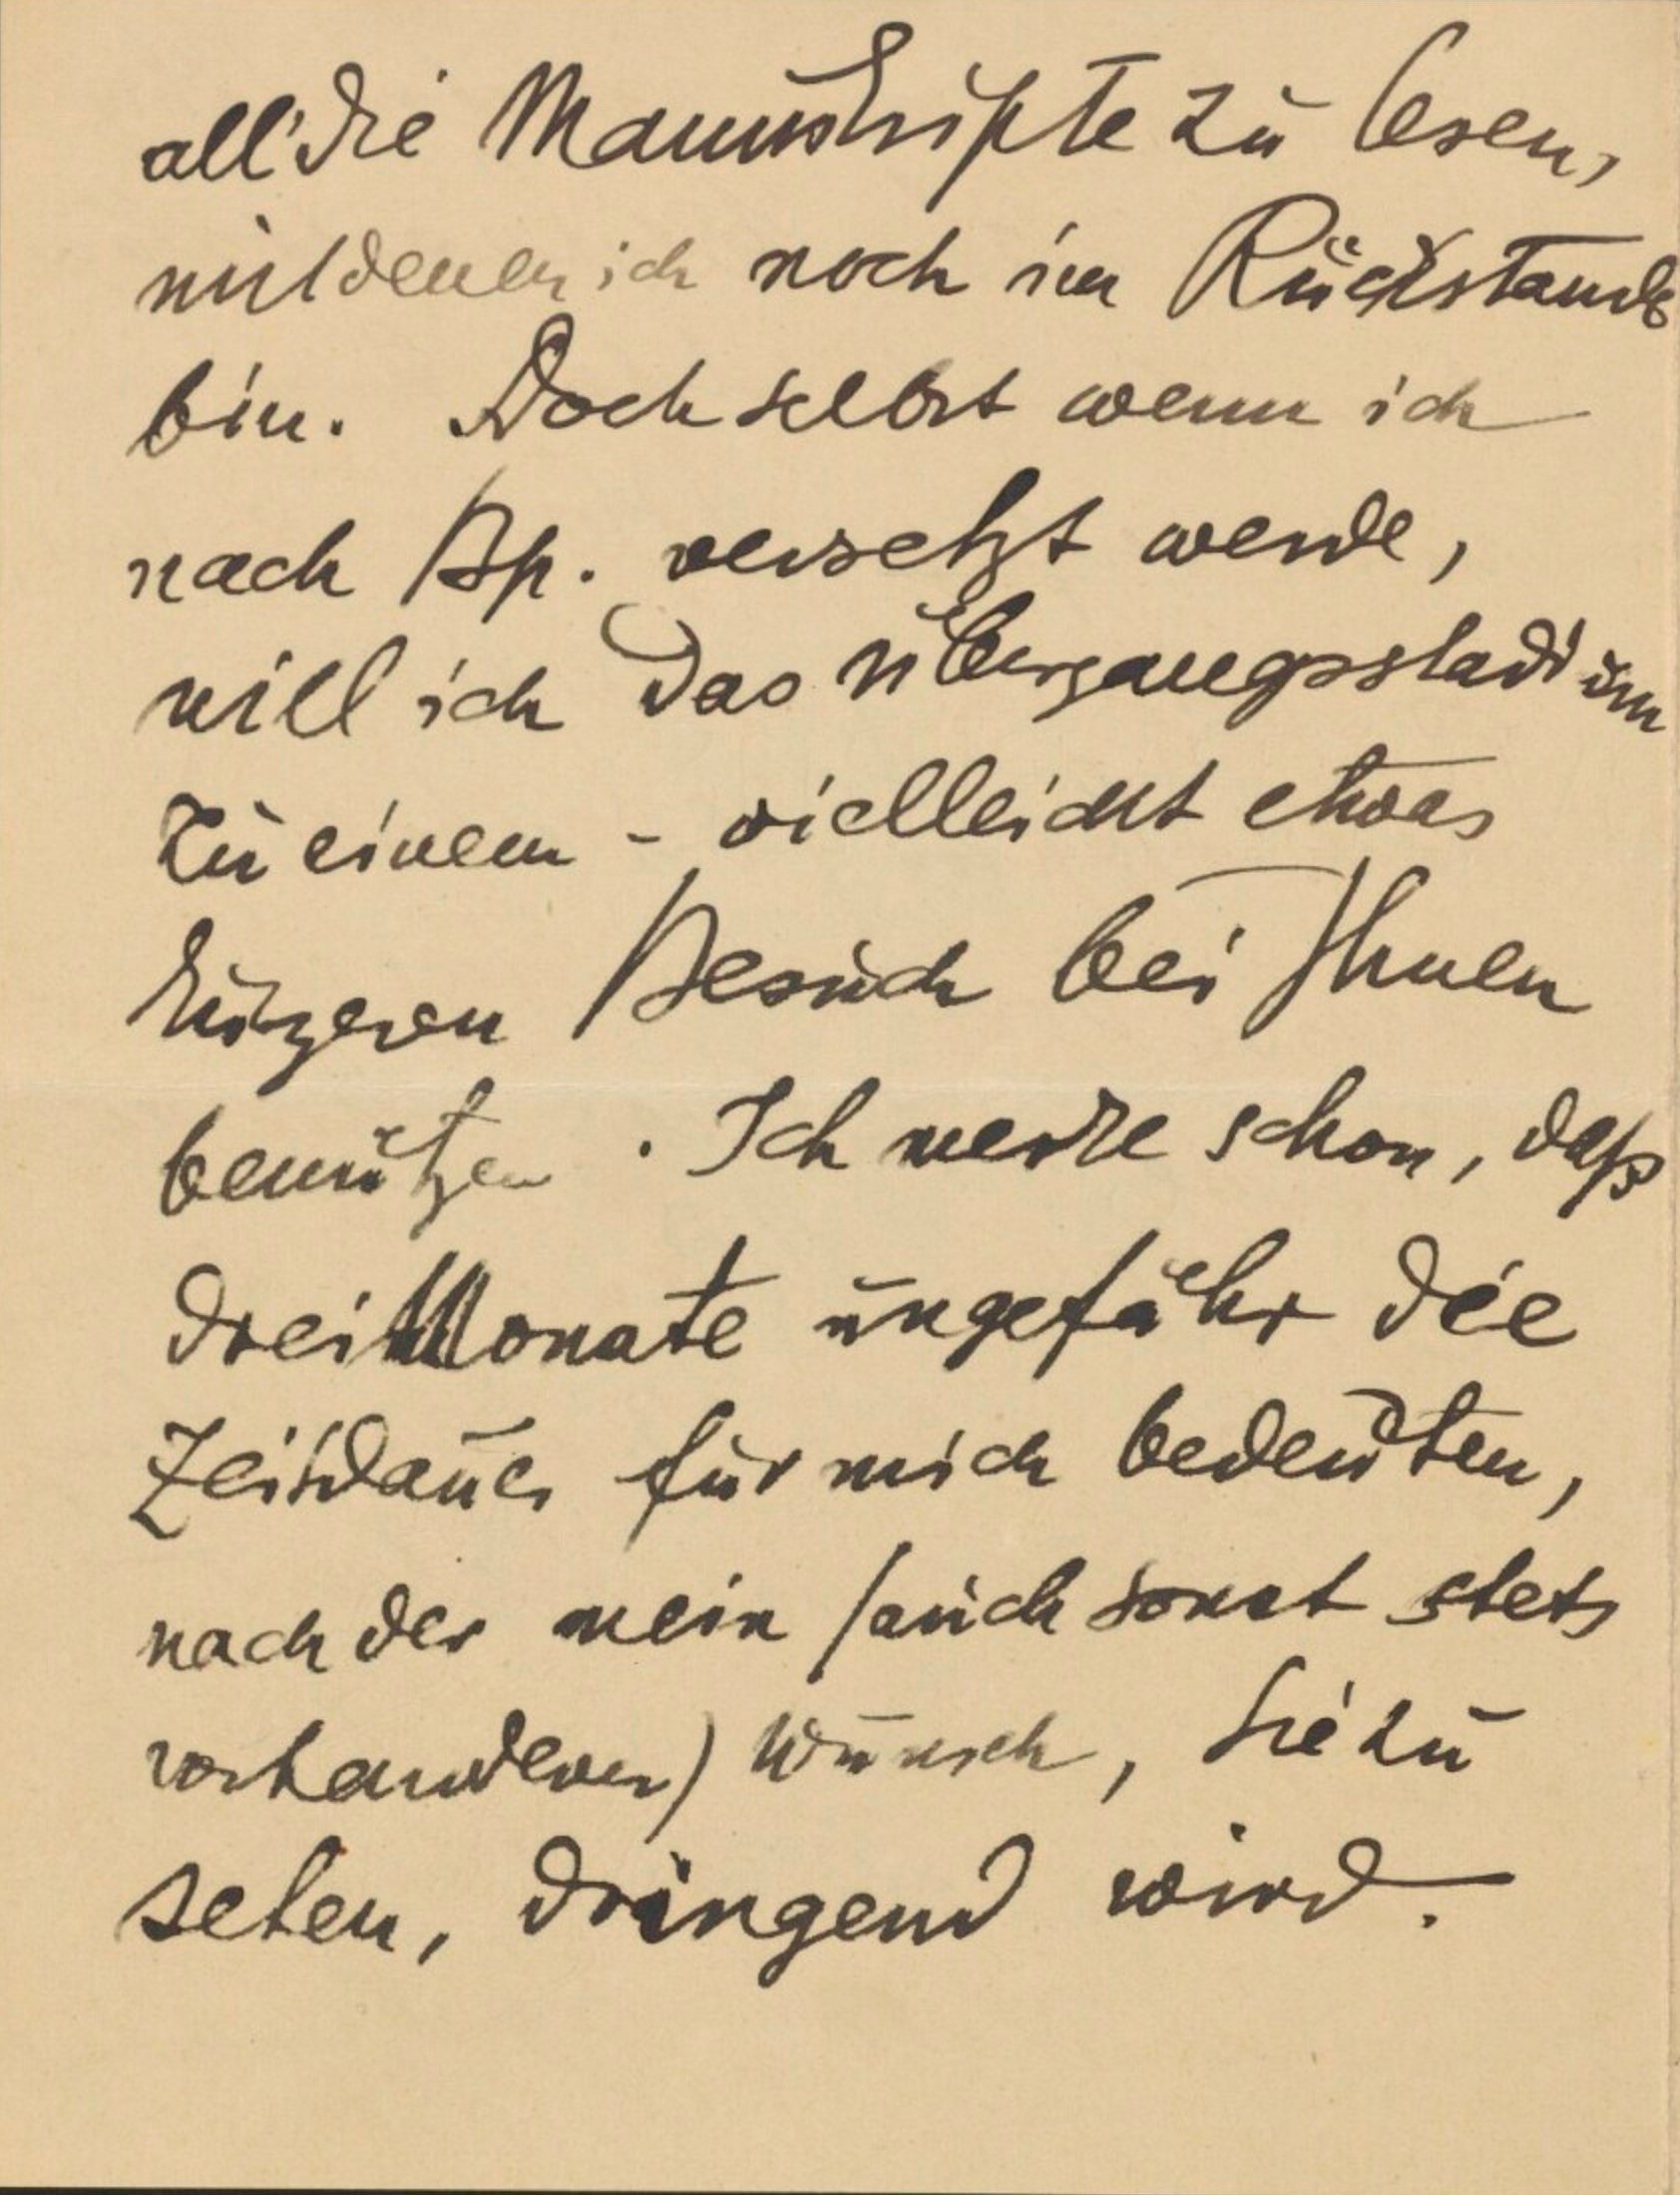 all' die Manuskripte zu lesen,
mit denen ich noch im Rückstande
bin. Doch selbst wenn ich
nach Bp. versetzt werde,
will ich das Übergangsstadium
zu einem - vielleicht etwas
kürzeren Besuch bei Ihnen
benützen. Ich merke schon, daß
drei Monate ungefähr die
Zeitdauer für mich bedeuten,
nach der mein (auch sonst stets
vorhandener) Wunsch, Sie zu
sehen, dringend wird.